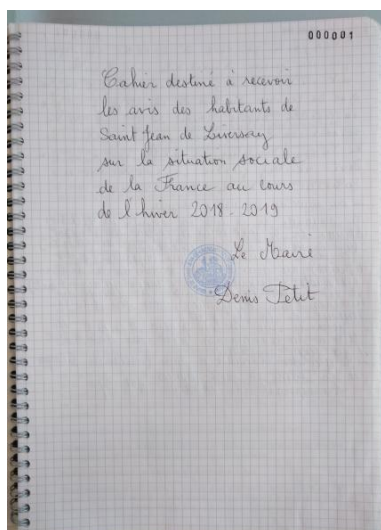 000001
Cahier destiné à recevoir
les avis des habitants de
Saint Jean de Liversay
sur la situation sociale
de la France au cours
de l'hiver 2018-2019
Le Maire
Denis Petit